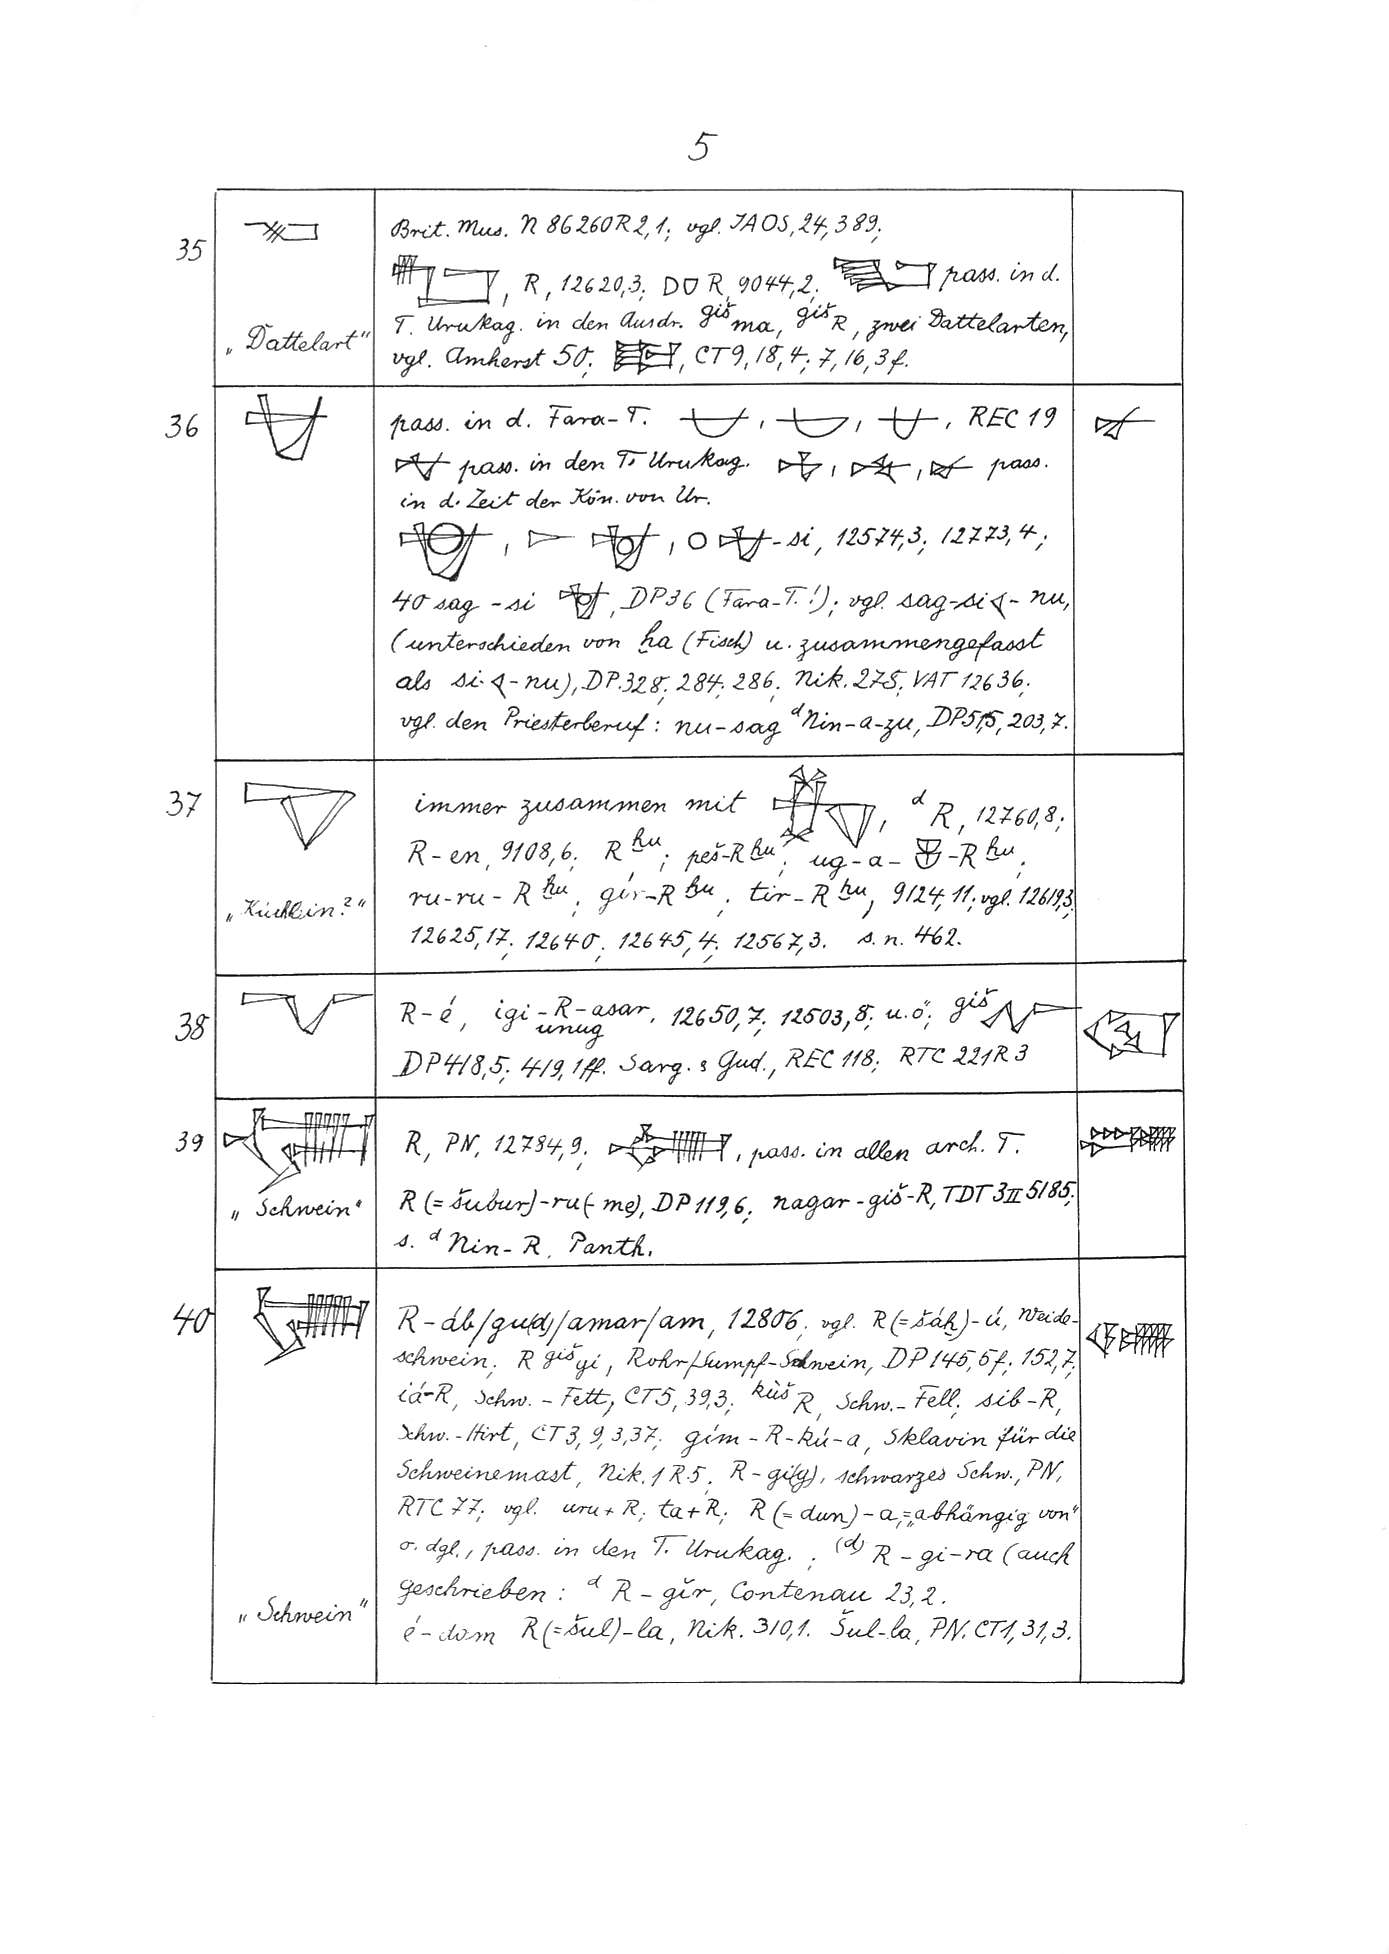 5
35
Brit. Mus. N 86260 R 2,1; vgl. JAOS, 24, 389;
, R, 12620,3; R 9044,2; pass. in d.
T. Urukag. in den Ausdr. giš ma, giš R, zwei Dattelarten,
„Dattelart“
vgl. Amherst 50; , CT 9, 18, 4; 7, 16, 3 f.
36
pass. in d. Fara-T. , , , REC 19
pass. in den T. Urukag. , , pass.
in d. Zeit der Kön. von Ur.
, , -si, 12574,3; 12773,4;
40 sag-si , DP 36 (Fara-T.!); vgl. sag-si-nu,
(unterschieden von ḫa (Fisch) u. zusammengefasst
als si-nu), DP. 328; 284; 286; Nik. 275; VAT 12636;
vgl. den Priesterberuf: nu-sag ᵈNin-a-zu, DP 203,7.
37
immer zusammen mit , ᵈ R, 12760,8;
R-en, 9108,6; R ḫu; peš-R ḫu; ug-a- -R ḫu;
„Küchlein?“
ru-ru-R ḫu; gír-R ḫu; tir-R ḫu, 9124,11; vgl. 12619,3;
12625,17; 12640; 12645,4; 12567,3. s. n. 462.
38
R-é, igi-R-asar, 12650,7; 12503,8; u. ö; giš
unug
DP 418,5; 419,1ff. Sarg. Gud., REC 118; RTC 221 R 3
39
R, PN, 12784,9; , pass. in allen arch. T.
„Schwein“
R (= šubur)-ru(-me), DP 119,6; nagar-giš-R, TDT 3 II 5185;
s. ᵈ Nin-R, Panth.
40
R-áb/gu(d)/amar/am, 12806; vgl. R (= šáḫ)-ú, Weide-
schwein; R giš gi, Rohr/Sumpf-Schwein, DP 145,5f; 152,7;
iá-R, Schw.-Fett, CT 5, 39,3; kùš R, Schw.-Fell; sib-R,
Schw.-Hirt, CT 3, 9, 3, 37; gím-R-kú-a, Sklavin für die
Schweinemast, Nik. 1 R 5; R-gi(g), schwarzes Schw., PN,
RTC 77; vgl. uru+R; ta+R; R (= dun)-a, = „abhängig von“
o. dgl., pass. in den T. Urukag.; (d) R-gi-ra (auch
geschrieben: ᵈ R-gĭr, Contenau 23,2.
„Schwein“
é-dam R (= šul)-la, Nik. 310,1. Šul-la, PN. CT 1, 31, 3.